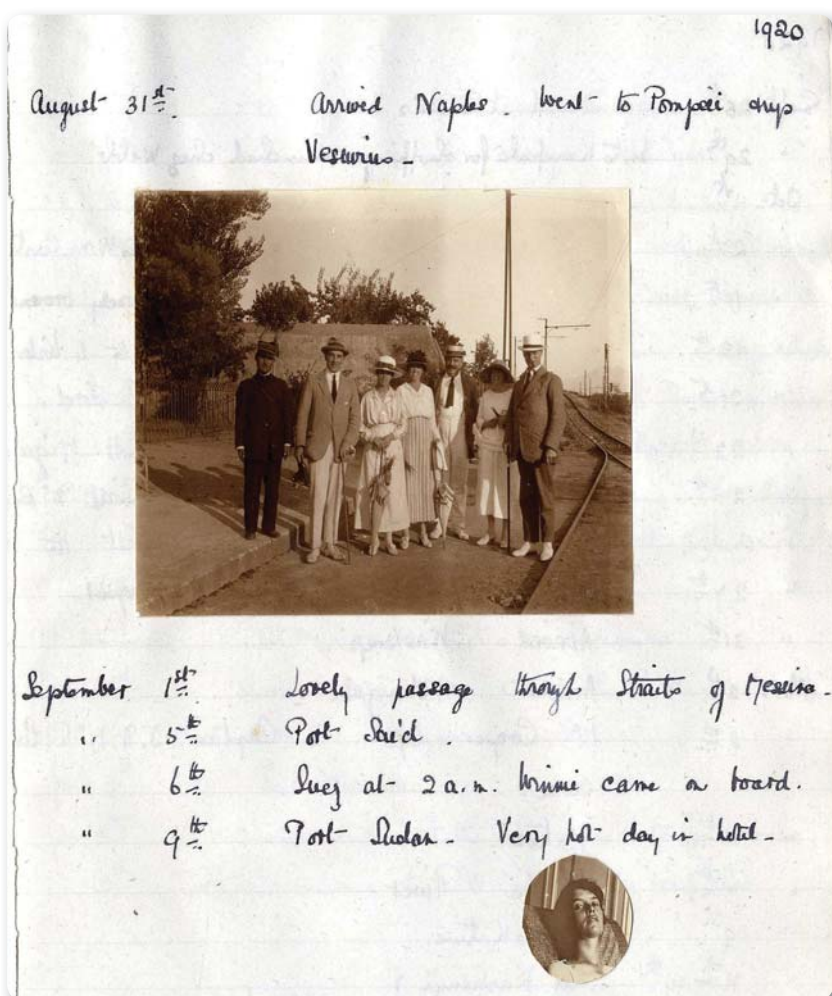 1920
August 31st. Arrived Naples. Went to Pompeii & up
Vesuvius -
September 1st. Lovely passage through Straits of Messina -
" 5th Port Sa'id.
" 6th Suez at 2 a.m. Winnie came on board.
" 9th Port Sudan - Very hot day in hotel -